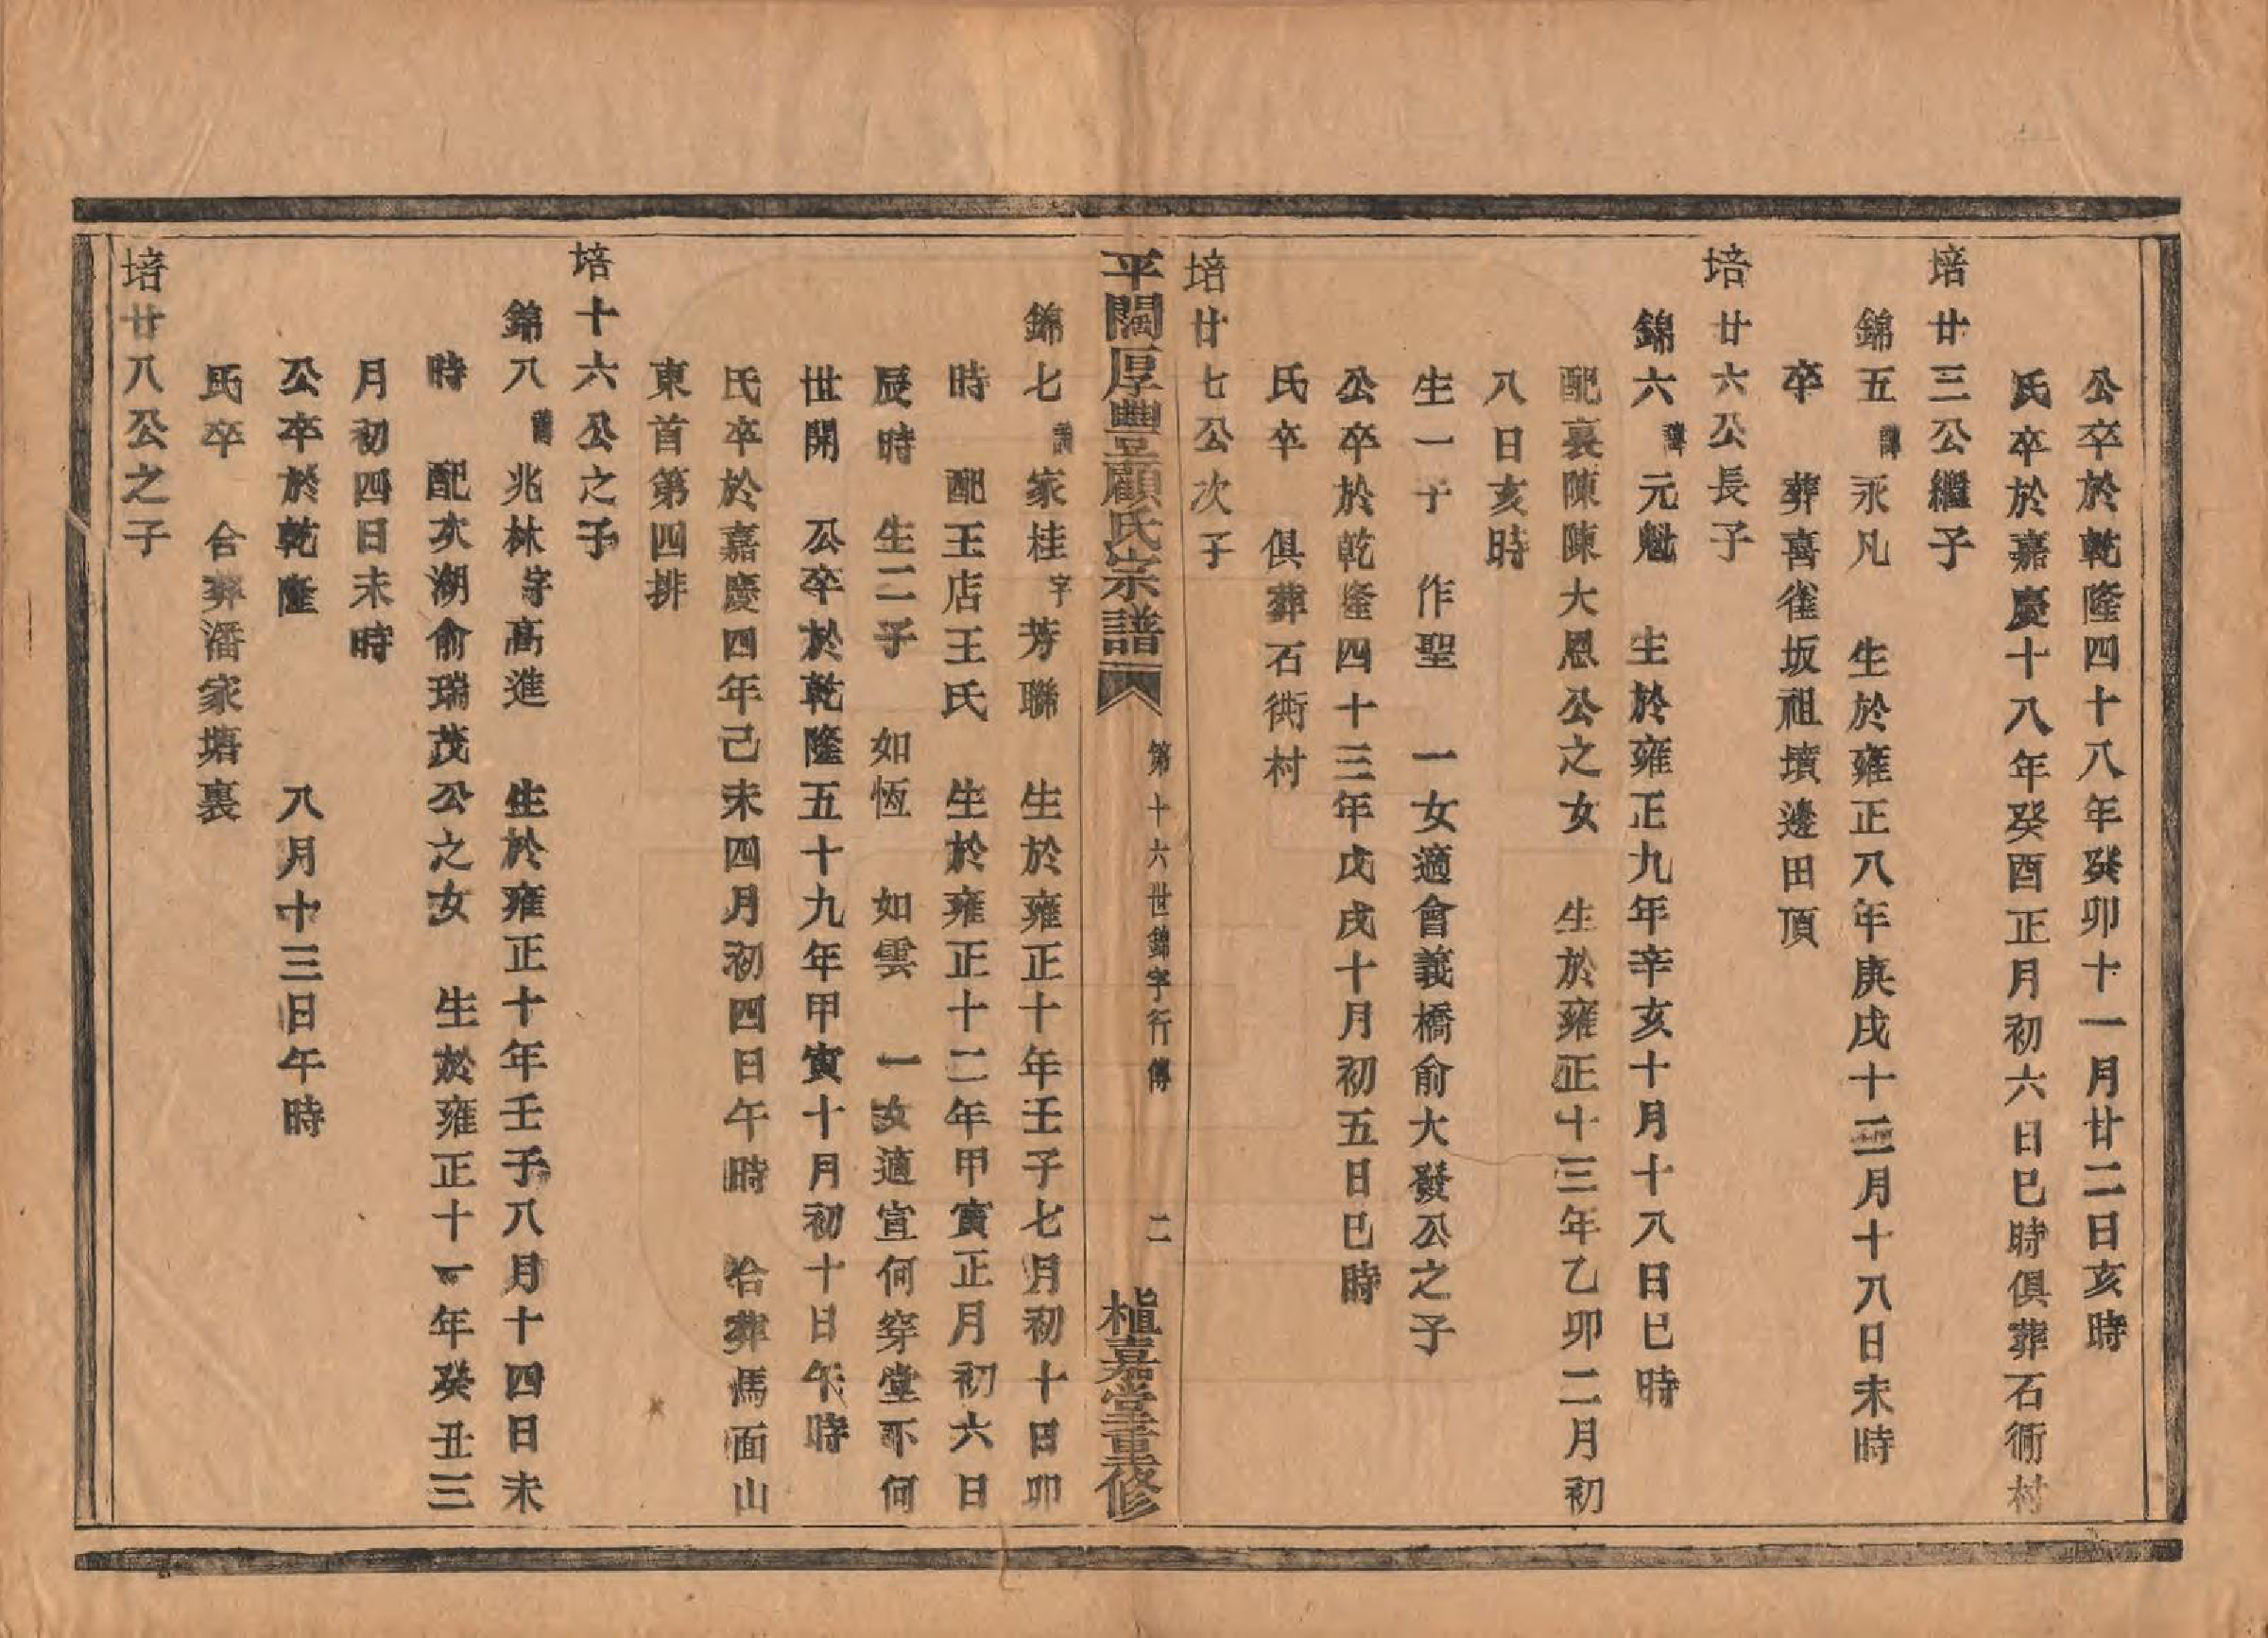 公卒於乾隆四十八年癸卯十一月廿二日亥時
氏卒於嘉慶十八年癸酉正月初六日巳時俱葬石衕村
培廿三公繼子
錦五諱永凡　生於雍正八年庚戌十二月十八日未時
卒　葬喜雀坂祖墳邊田頂
培廿六公長子
錦六諱元魁　生於雍正九年辛亥十月十八日巳時
配裏陳陳大恩公之女　生於雍正十三年乙卯二月初
八日亥時
生一子　作聖　一女適會義橋俞大發公之子
公卒於乾隆四十三年戊戌十月初五日巳時
氏卒　俱葬石衖村
培廿七公次子
平闊厚豊顧氏宗譜
第十六世錦字行傳　二
植嘉堂重修
錦七諱家桂字芳聯　生於雍正十年壬子七月初十日卯
時　配王店王氏　生於雍正十二年甲寅正月初六日
辰時　生二子　如恆　如雲　一女適宣何穿堂下何
世開　公卒於乾隆五十九年甲寅十月初十日午時
氏卒於嘉慶四年己未四月初四日午時　合葬馬面山
東首第四排
培十六公之子
錦八諱兆林字高進　生於雍正十年壬子八月十四日未
時　配次湖俞瑞茂公之女　生於雍正十一年癸丑三
月初四日未時
公卒於乾隆　八月十三日午時
氏卒　合葬潘家塘裏
培廿八公之子